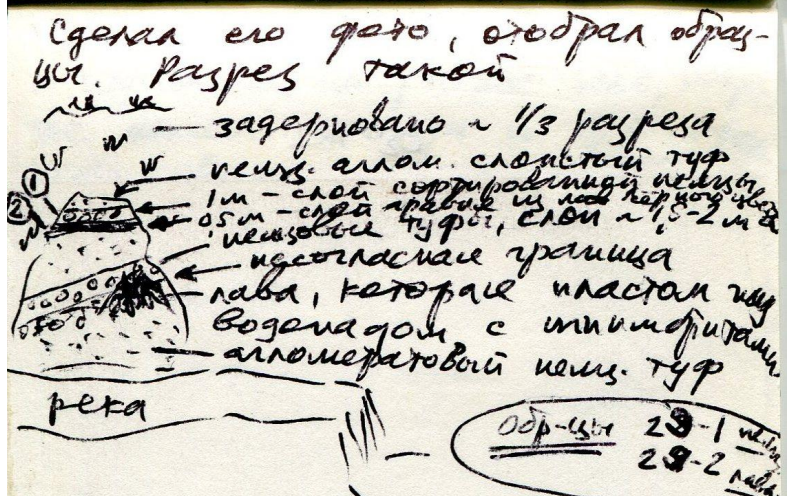 Сделал его фото, отобрал образ-
цы. Разрез такой
задерновано ~ 1/3 разреза
пемз. аглом. слоистый туф
1м – слой сортированной пемзы
0,5 м – слой гравия из лав черного цвета
пемзовые туфы, слои ~ 1,5-2 м
несогласная граница
лава, которая пластом над
водопадом с игнимбритами
агломератовый пемз. туф
река
1
2
Обр-цы 29-1
29-2 лава